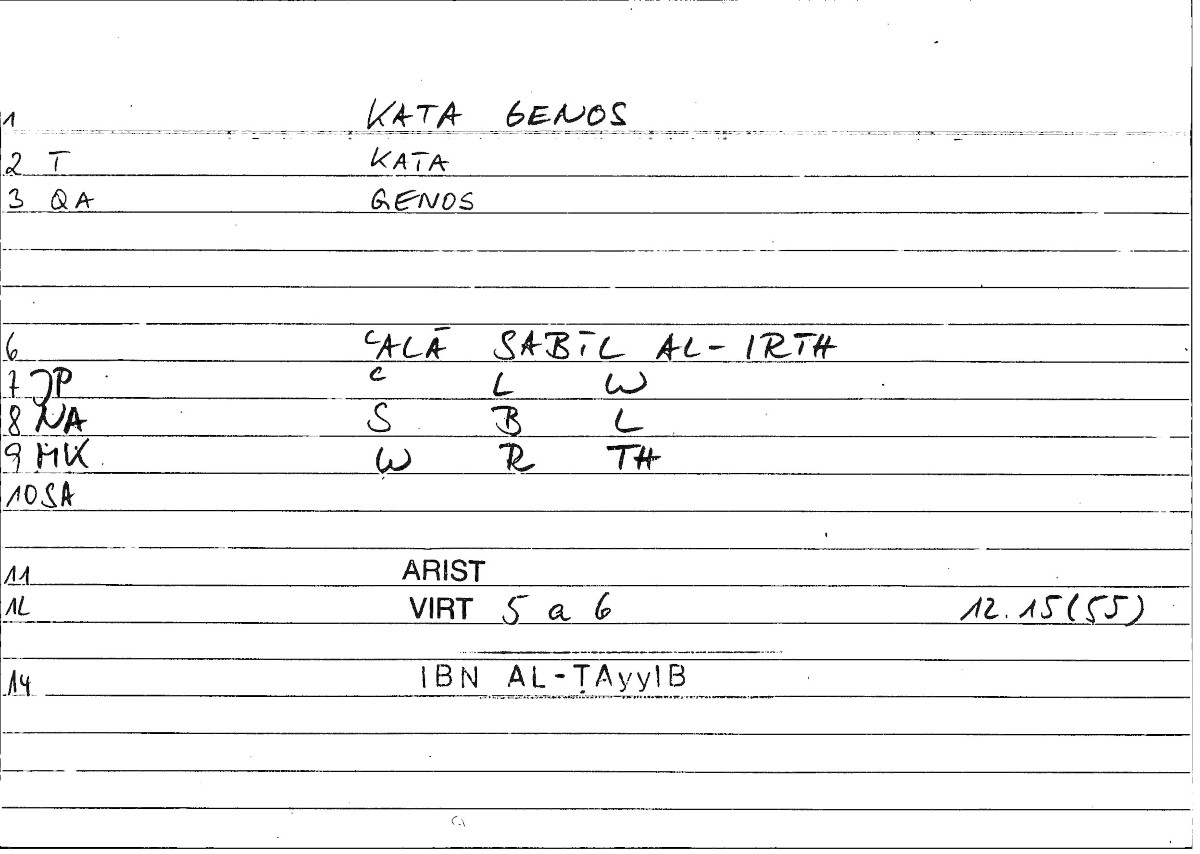 1 KATA GENOS
2 T KATA
3 QA GENOS
6 ʿALĀ SABĪL AL-IRTH
7 JP ʿ L W
8 NA S B L
9 MK W R TH
10 SA
11 ARIST
12 VIRT 5 a 6 12.15(55)
14 IBN AL-ṬAyyIB